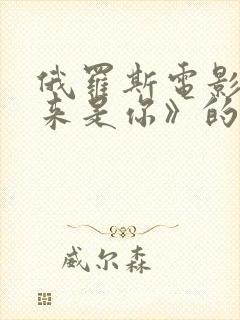 俄羅斯電影
来是你》的
威尔森